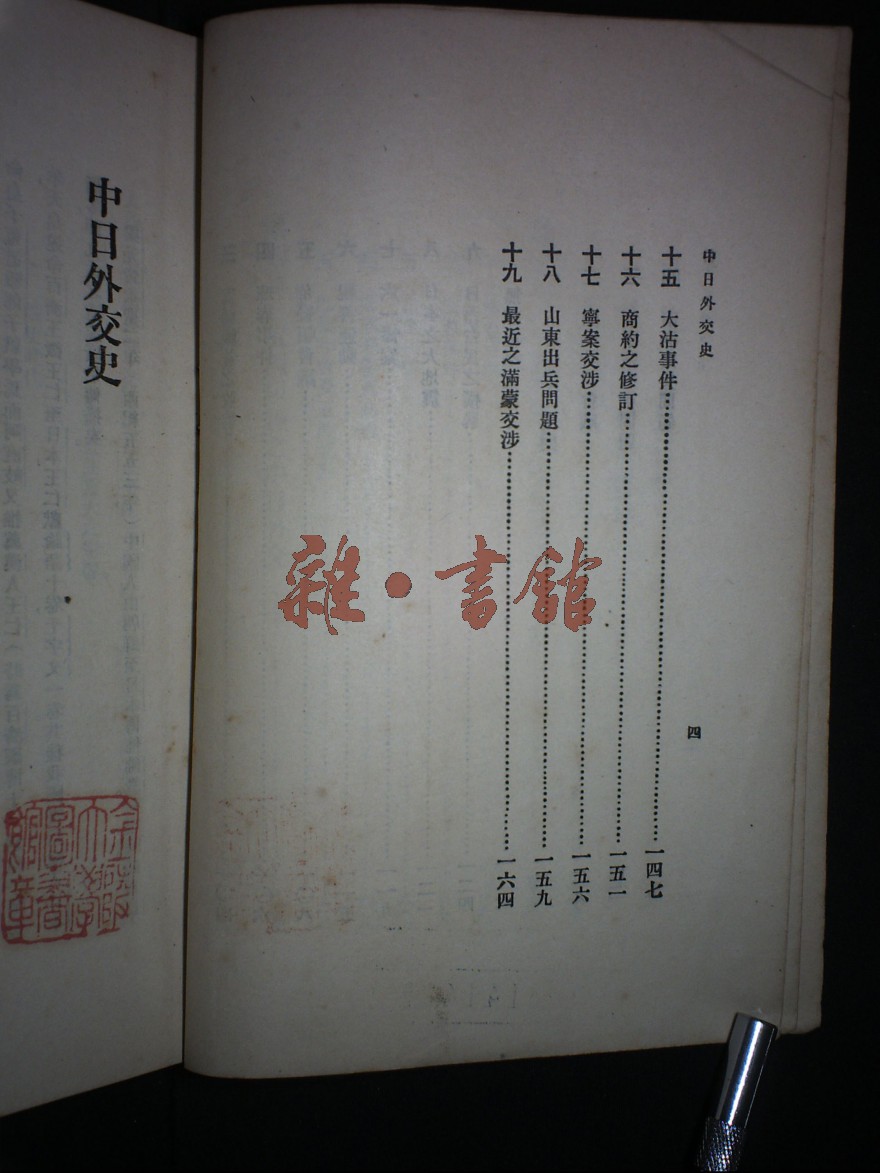 中日外交史
十五　大沽事件……一四七
十六　商約之修訂……一五一
十七　寧案交涉……一五六
十八　山東出兵問題……一五九
十九　最近之滿蒙交涉……一六四
四
中日外交史
雜·書館
金陵大學圖書館章